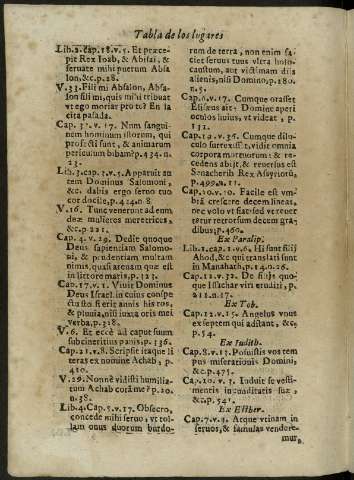 Tabla de los lugares
Lib.2.cap.18.v.5. Et præce-
pit Rex Ioab, & Abisai, &
seruate mihi puerum Absa
lon, &c.p.28.
V.33. Fili mi Absalon, Absa-
lon fili mi, quis mihi tribuat
vt ego moriar pro te? En la
cita pasada.
Cap. v.17. Num sangui-
nem hominum istorum, qui
profecti sunt, & animarum
periculum bibam? p.434.n.
23.
Lib.3.cap.3.v.5. Apparuit au
tem Dominus Salomoni,
&c. dabis ergo seruo tuo
cor docile, p.414.n.8
V.16. Tunc venerunt ad eum
duæ mulieres meretrices,
&c.p.221.
Cap.4.v.29. Dedit quoque
Deus sapientiam Salomo-
ni, & prudentiam multam
nimis, quasi arenam quæ est
in littore maris, p.123.
Cap.17.v.1. Viuit Dominus
Deus Israel in cuius conspe
ctu sto si erit annis his ros,
& pluuia, nisi iuxta oris mei
verba, p.318.
V.6. Et ecce ad caput suum
subcineritius panis, p.136.
Cap.21.v.8. Scripsit itaque li
teras ex nomine Achab, p.
410.
V.29. Nonne vidisti humilia-
tum Achab corā me? p.20.
n.38.
Lib.4.Cap.5.v.17. Obsecro,
concede mihi seruo, vt tol-
lam onus duorum burdo-
rum de terra, non enim fa-
ciet seruus tuus vltra holo-
caustum, aut victimam dijs
alienis, nisi Domino, p.280.
n.5.
Cap.6.v.17. Cumque orasset
Eliseus ait: Domine aperi
oculos huius, vt videat, p.
131.
Cap.19.v.36. Cumque dilu-
culo surrexisset, vidit omnia
corpora mortuorum: & re-
cedens abijt, & reuersus est
Senacherib Rex Assyriorū,
p.499.n.11.
Cap.20.v.10. Facile est vm-
brā crescere decem lineas,
nec volo vt fiat sed vt reuer
tatur retrorsum decem gra
dibus, p.460.
Ex Paralip.
Lib.1.cap.8.v.6. Hi sunt filij
Ahod, & qui translati sunt
in Manahath, p.14.n.26.
Cap.12.v.32. De filijs quo-
que Issachar viri eruditi, p.
211.n.17.
Ex Tob.
Cap.12.v.15. Angelus vnus
ex septem qui adstant, &c.
p.54.
Ex Iudith.
Cap.8.v.13. Posuistis vos tem
pus miserationis Domini,
&c.p.475.
Cap.10.v.3. Induit se vesti-
mentis iucunditatis suæ,
&c.p.541.
Ex Esther.
Cap.7.v.4. Atque vtinam in
seruos, & famulas vendere-
mur,